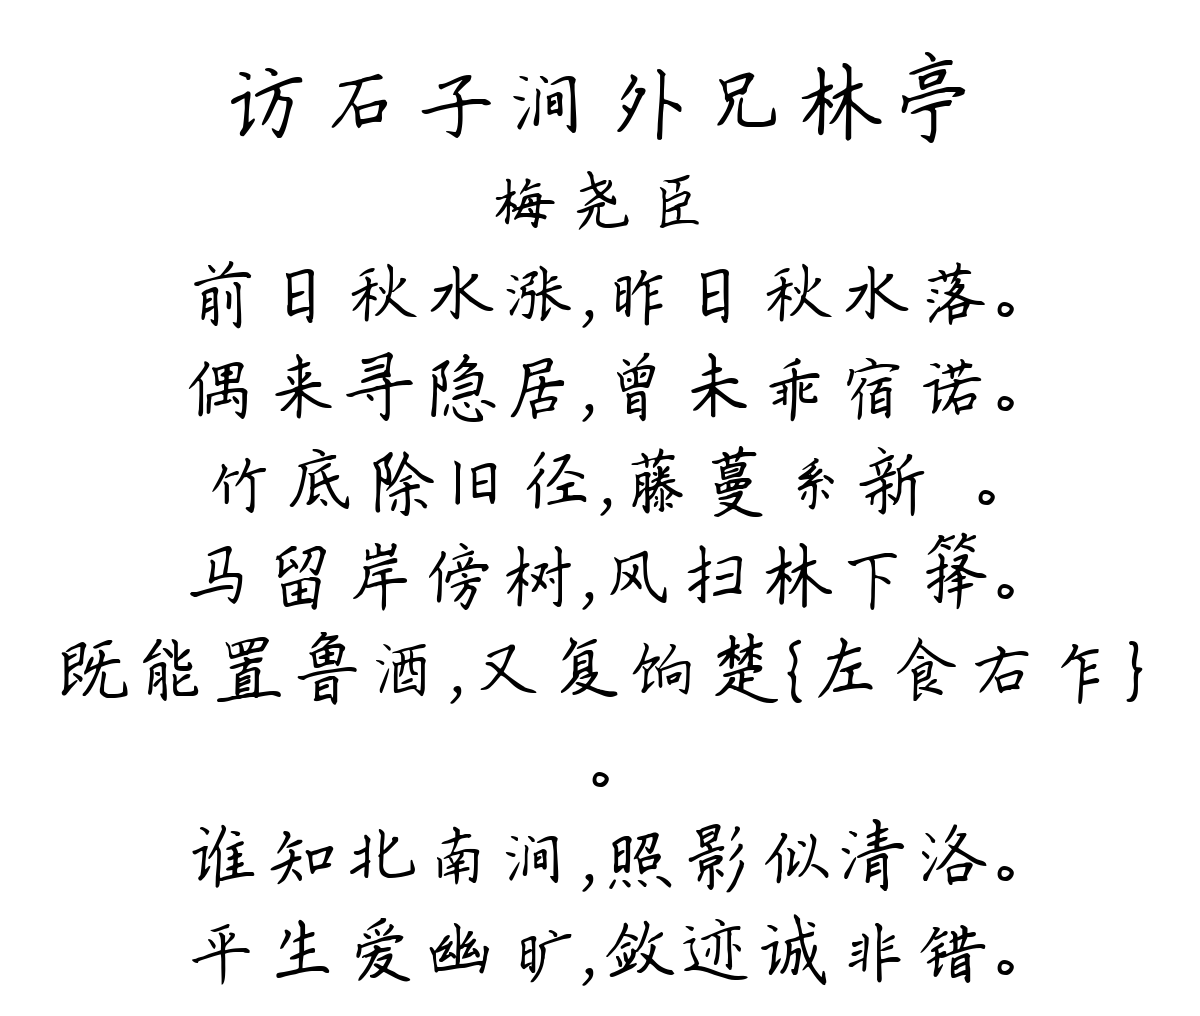 访石子涧外兄林亭
梅尧臣
前日秋水涨,昨日秋水落。
偶来寻隐居,曾未乖宿诺。
竹底除旧径,藤蔓系新 。
马留岸傍树,风扫林下箨。
既能置鲁酒,又复饷楚{左食右乍}
。
谁知北南涧,照影似清洛。
平生爱幽旷,敛迹诚非错。